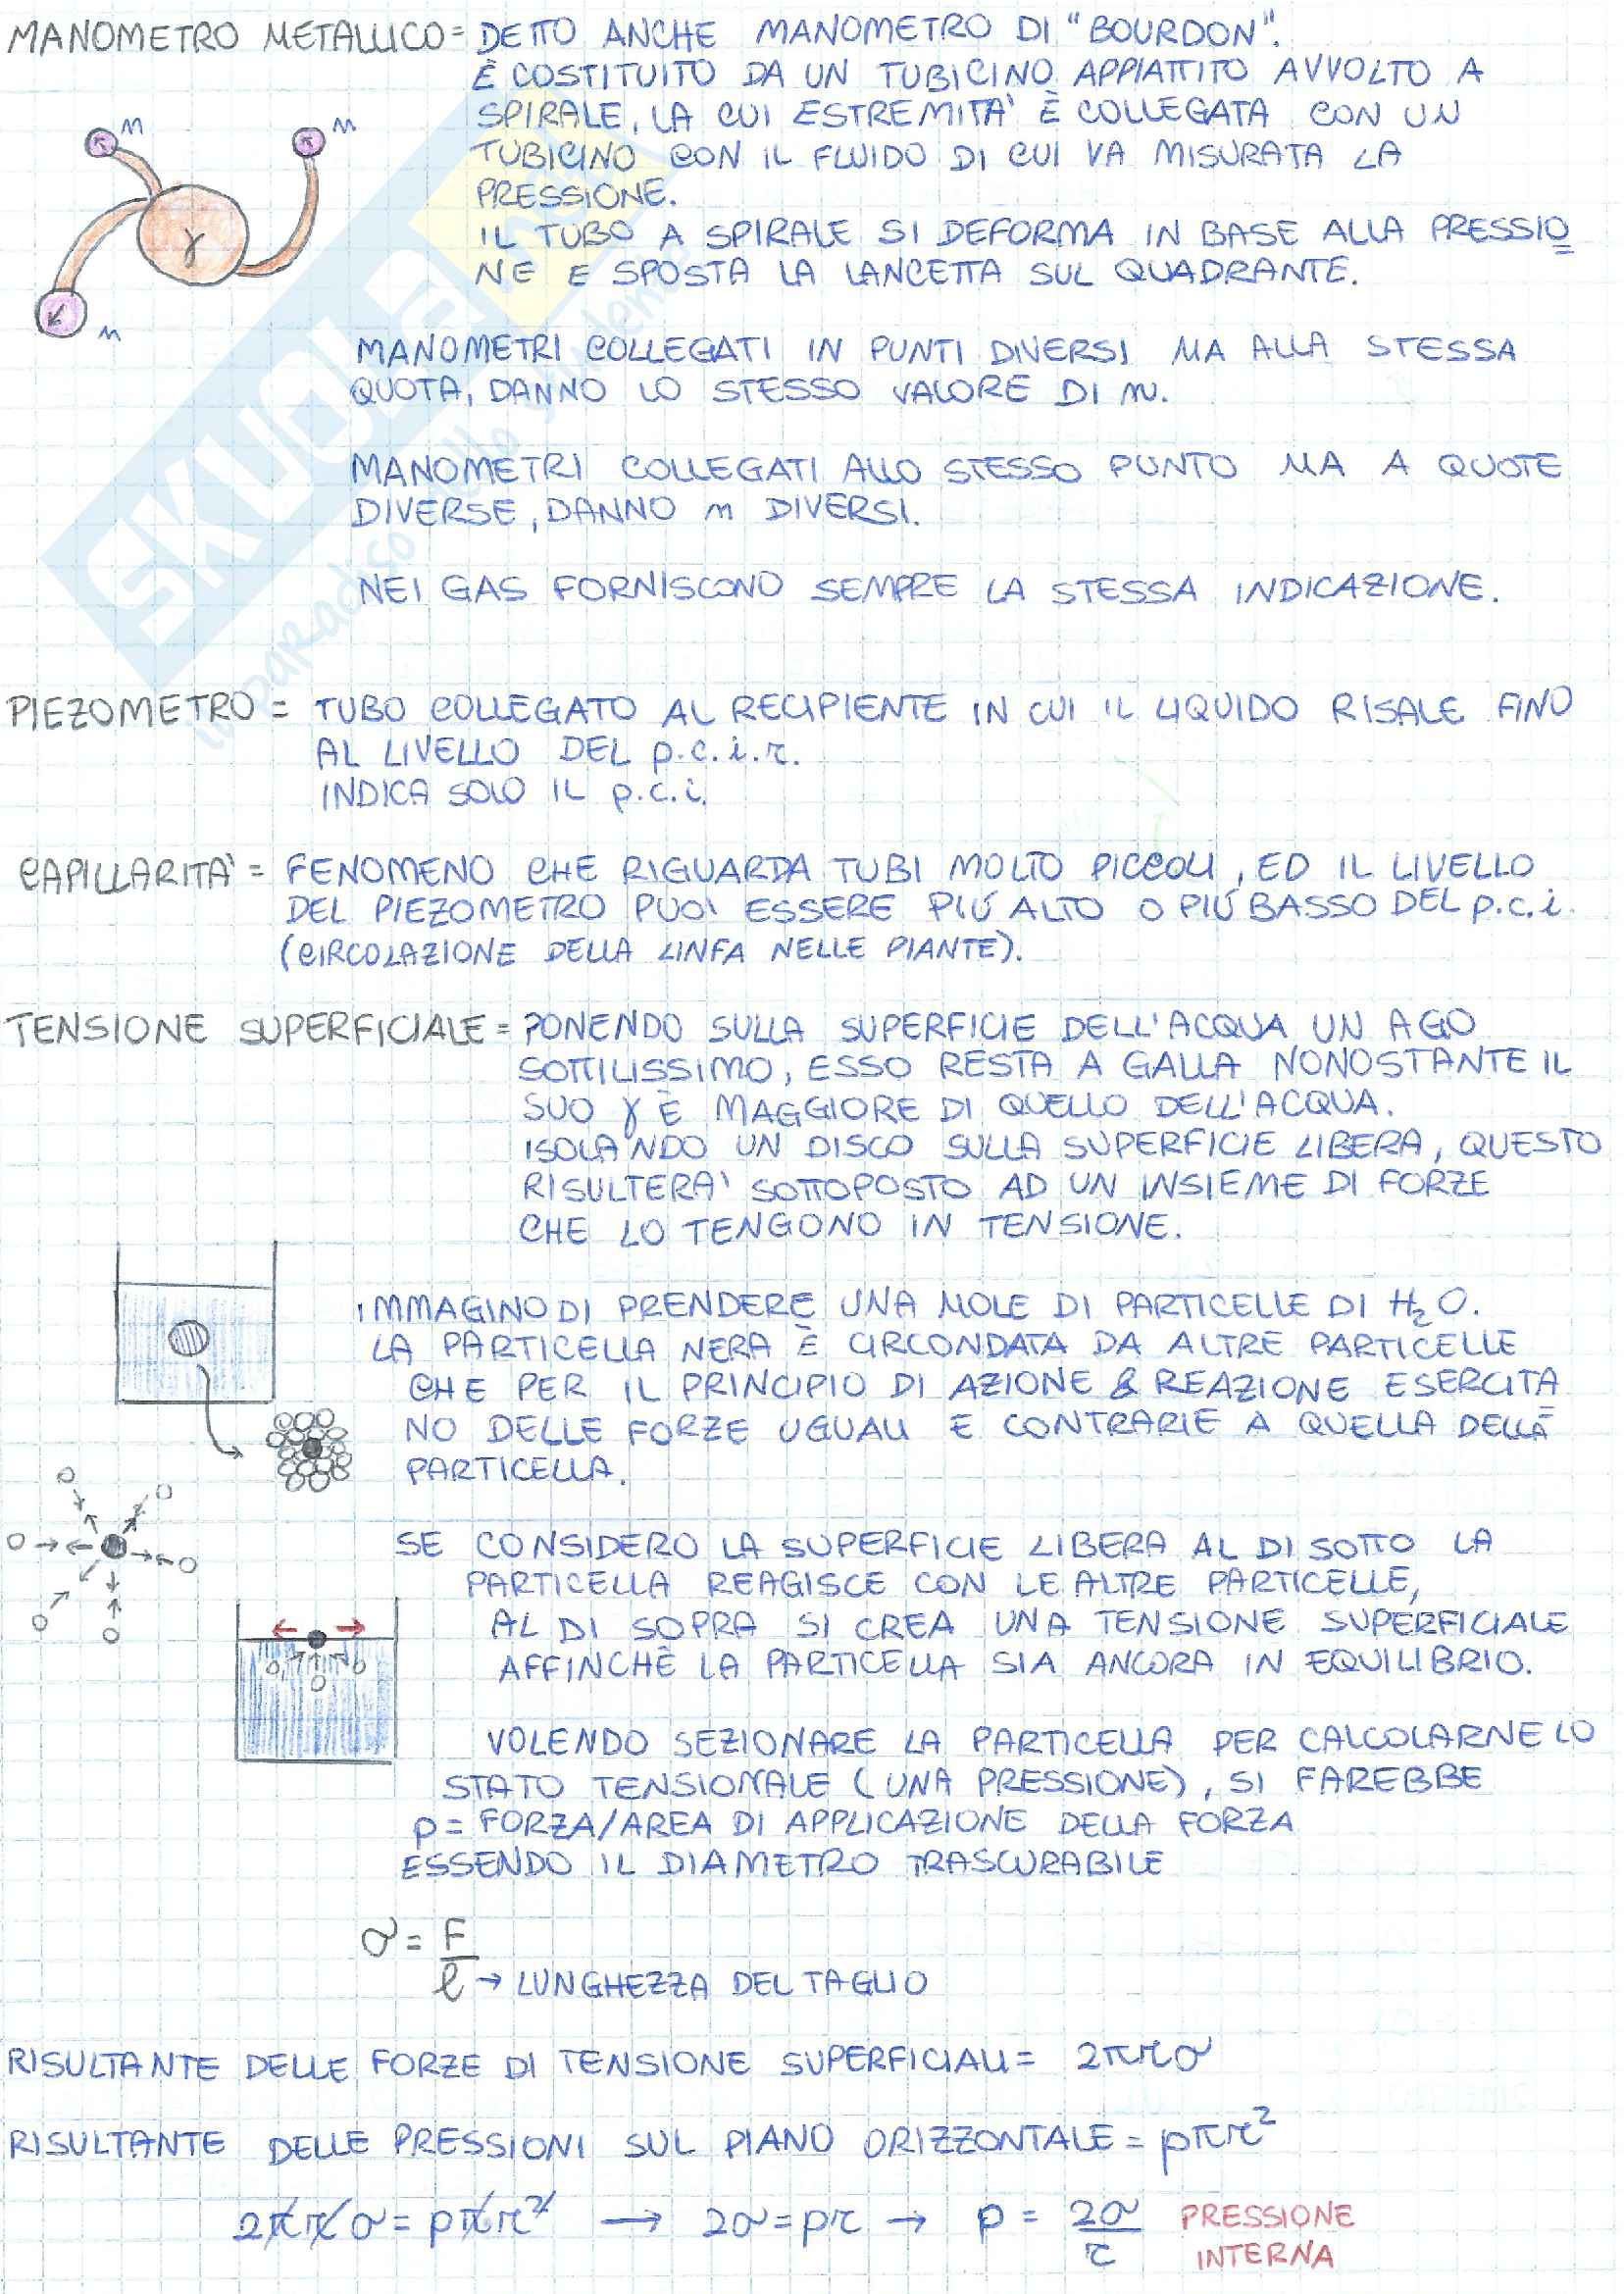 MANOMETRO METALLICO = DETTO ANCHE MANOMETRO DI "BOURDON".
È COSTITUITO DA UN TUBICINO APPIATTITO AVVOLTO A
SPIRALE, LA CUI ESTREMITA' È COLLEGATA CON UN
TUBICINO CON IL FLUIDO DI CUI VA MISURATA LA
PRESSIONE.
IL TUBO A SPIRALE SI DEFORMA IN BASE ALLA PRESSIO
NE E SPOSTA LA LANCETTA SUL QUADRANTE.
n
n
γ
n
MANOMETRI COLLEGATI IN PUNTI DIVERSI MA ALLA STESSA
QUOTA, DANNO LO STESSO VALORE DI n.
MANOMETRI COLLEGATI ALLO STESSO PUNTO MA A QUOTE
DIVERSE, DANNO n DIVERSI.
NEI GAS FORNISCONO SEMPRE LA STESSA INDICAZIONE.
PIEZOMETRO = TUBO COLLEGATO AL RECIPIENTE IN CUI IL LIQUIDO RISALE FINO
AL LIVELLO DEL p.c.i.r.
INDICA SOLO IL p.c.i.
CAPILLARITA' = FENOMENO CHE RIGUARDA TUBI MOLTO PICCOLI, ED IL LIVELLO
DEL PIEZOMETRO PUO' ESSERE PIÚ ALTO O PIÚ BASSO DEL p.c.i.
(CIRCOLAZIONE DELLA LINFA NELLE PIANTE).
TENSIONE SUPERFICIALE = PONENDO SULLA SUPERFICIE DELL'ACQUA UN AGO
SOTTILISSIMO, ESSO RESTA A GALLA NONOSTANTE IL
SUO γ È MAGGIORE DI QUELLO DELL'ACQUA.
ISOLANDO UN DISCO SULLA SUPERFICIE LIBERA, QUESTO
RISULTERA' SOTTOPOSTO AD UN INSIEME DI FORZE
CHE LO TENGONO IN TENSIONE.
IMMAGINO DI PRENDERE UNA MOLE DI PARTICELLE DI H₂O.
LA PARTICELLA NERA È CIRCONDATA DA ALTRE PARTICELLE
CHE PER IL PRINCIPIO DI AZIONE & REAZIONE ESERCITA
NO DELLE FORZE UGUALI E CONTRARIE A QUELLA DELLA
PARTICELLA.
SE CONSIDERO LA SUPERFICIE LIBERA AL DI SOTTO LA
PARTICELLA REAGISCE CON LE ALTRE PARTICELLE,
AL DI SOPRA SI CREA UNA TENSIONE SUPERFICIALE
AFFINCHÈ LA PARTICELLA SIA ANCORA IN EQUILIBRIO.
VOLENDO SEZIONARE LA PARTICELLA PER CALCOLARNE LO
STATO TENSIONALE (UNA PRESSIONE), SI FAREBBE
p = FORZA/AREA DI APPLICAZIONE DELLA FORZA
ESSENDO IL DIAMETRO TRASCURABILE
σ = F
ℓ → LUNGHEZZA DEL TAGLIO
RISULTANTE DELLE FORZE DI TENSIONE SUPERFICIALI = 2πrσ
RISULTANTE DELLE PRESSIONI SUL PIANO ORIZZONTALE = pπr²
2πrσ = pπr² → 2σ = pr → p = 2σ/r PRESSIONE
INTERNA
SKUOLA.net
il paradiso dello studente